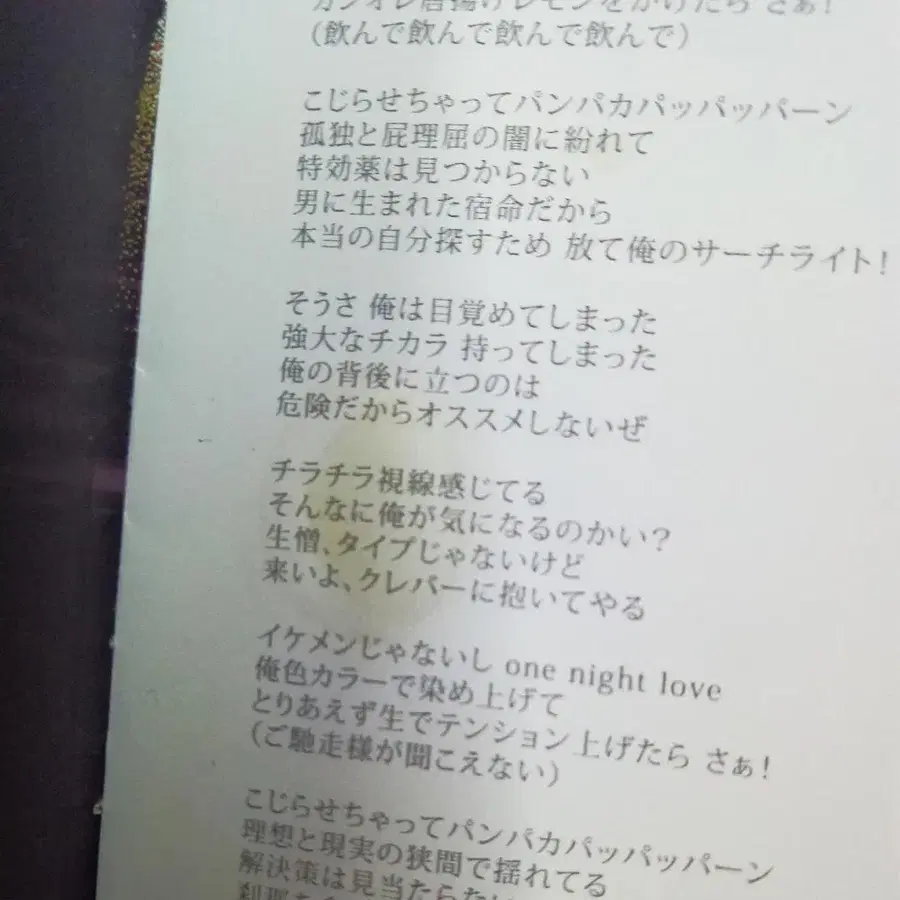 カシオレ唐揚げレモンをかけたら さぁ!
(飲んで飲んで飲んで飲んで)
こじらせちゃってパンパカパッパッパーン
孤独と屁理屈の闇に紛れて
特効薬は見つからない
男に生まれた宿命だから
本当の自分探すため 放て俺のサーチライト!
そうさ 俺は目覚めてしまった
強大なチカラ 持ってしまった
俺の背後に立つのは
危険だからオススメしないぜ
チラチラ視線感じてる
そんなに俺が気になるのかい?
生憎、タイプじゃないけど
来いよ、クレバーに抱いてやる
イケメンじゃないし one night love
俺色カラーで染め上げて
とりあえず生でテンション上げたら さぁ!
(ご馳走様が聞こえない)
こじらせちゃってパンパカパッパッパーン
理想と現実の狭間で揺れてる
解決策は見当たらな